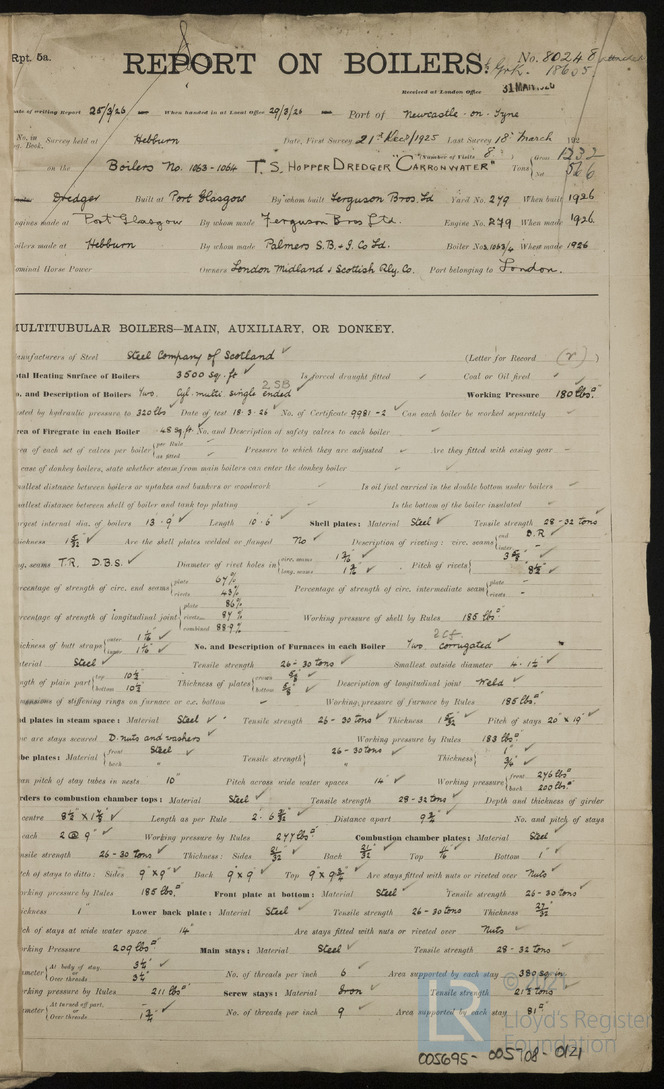 Rpt. 5a.
REPORT ON BOILERS.
No. 80248
Grk. 18605
Received at London Office 31 MAR 1926
ate of writing Report 25/3/26 When handed in at Local Office 29/3/26 Port of Newcastle-on-Tyne
No. in Survey held at Hebburn Date, First Survey 21st Dec 1925 Last Survey 18th March 192
g. Book. (Number of Visits 8)
on the Boilers No. 1063-1064 T.S. HOPPER DREDGER "CARRONWATER" Tons Gross 1232 Net 566
Dredger Built at Port Glasgow By whom built Ferguson Bros. Ld Yard No. 279 When built 1926
ngines made at Port Glasgow By whom made Ferguson Bros Ltd. Engine No. 279 When made 1926.
oilers made at Hebburn By whom made Palmers S.B. & I. Co Ld. Boiler No. 1063/4 When made 1926
ominal Horse Power Owners London Midland & Scottish Rly. Co. Port belonging to London.
MULTITUBULAR BOILERS—MAIN, AUXILIARY, OR DONKEY.
anufacturers of Steel Steel Company of Scotland (Letter for Record (r))
otal Heating Surface of Boilers 3500 sq. ft Is forced draught fitted Coal or Oil fired
2 SB
o. and Description of Boilers Two. Cyl. multi single ended Working Pressure 180 lbs.
ested by hydraulic pressure to 320 lbs Date of test 18.3.26 No. of Certificate 9981-2 Can each boiler be worked separately
rea of Firegrate in each Boiler 48 sq. ft. No. and Description of safety valves to each boiler
rea of each set of valves per boiler {per Rule as fitted Pressure to which they are adjusted Are they fitted with easing gear
case of donkey boilers, state whether steam from main boilers can enter the donkey boiler
mallest distance between boilers or uptakes and bunkers or woodwork Is oil fuel carried in the double bottom under boilers
mallest distance between shell of boiler and tank top plating Is the bottom of the boiler insulated
argest internal dia. of boilers 13'-9" Length 10'-6" Shell plates: Material Steel Tensile strength 28-32 tons
hickness 1 5/32" Are the shell plates welded or flanged No Description of riveting: circ. seams {end D.R inter. -
ng. seams T.R. D.B.S. Diameter of rivet holes in {circ. seams long. seams Pitch of rivets { 8 1/2"
ercentage of strength of circ. end seams {plate 67% rivets 43% Percentage of strength of circ. intermediate seam {plate - rivets -
ercentage of strength of longitudinal joint {plate 86% rivets 87% combined 88.9% Working pressure of shell by Rules 185 lbs
hickness of butt straps {outer 1 1/16" inner 1 1/16" No. and Description of Furnaces in each Boiler Two corrugated
2 Cf.
aterial Steel Tensile strength 26-30 tons Smallest outside diameter 4'-1 1/2"
ngth of plain part {top 10 1/2" bottom 10 1/2" Thickness of plates {crown 5/8" bottom 5/8" Description of longitudinal joint Weld
mensions of stiffening rings on furnace or c.c. bottom Working pressure of furnace by Rules 185 lbs
nd plates in steam space: Material Steel Tensile strength 26-30 tons Thickness 1 5/32" Pitch of stays 20" x 19"
ow are stays secured D. nuts and washers Working pressure by Rules 183 lbs
ube plates: Material {front Steel back " Tensile strength { 26-30 tons " Thickness { 1"
ean pitch of stay tubes in nests 10" Pitch across wide water spaces 14" Working pressure {front 246 lbs back 200 lbs
irders to combustion chamber tops: Material Steel Tensile strength 28-32 tons Depth and thickness of girder
centre 8 1/2" x 1 1/2" Length as per Rule 2'-6 3/32" Distance apart 9 3/4" No. and pitch of stays
each 2 @ 9" Working pressure by Rules 247 lbs Combustion chamber plates: Material Steel
ensile strength 26-30 tons Thickness: Sides 21/32" Back 21/32" Top 11/16" Bottom 1"
itch of stays to ditto: Sides 9" x 9" Back 9" x 9" Top 9" x 9 3/4" Are stays fitted with nuts or riveted over Nuts
orking pressure by Rules 185 lbs Front plate at bottom: Material Steel Tensile strength 26-30 tons
hickness 1" Lower back plate: Material Steel Tensile strength 26-30 tons Thickness 27/32"
tch of stays at wide water space 14" Are stays fitted with nuts or riveted over Nuts
orking Pressure 209 lbs Main stays: Material Steel Tensile strength 28-32 tons
ameter {At body of stay, or Over threads 3 1/4" No. of threads per inch 6 Area supported by each stay 380 sq. in
orking pressure by Rules 211 lbs Screw stays: Material Iron Tensile strength 21 1/2 tons
ameter {At turned off part, or Over threads 1 3/4" No. of threads per inch 9 Area supported by each stay 81
© 2021
LR
Lloyd's Register
Foundation
005695-005708-0121